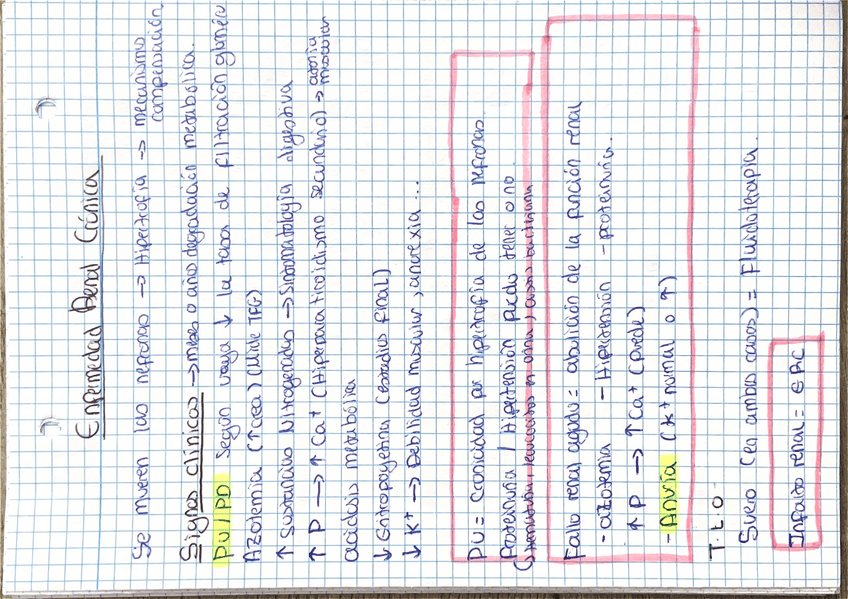 Enfermedad Renal Crónica
Se mueren las nefronas → Hipertrofia → mecanismo
compensación
Signos clínicos → meses o años degradación metabólica.
PU/PD Según vaya ↓ la tasa de filtración glomeru
Azotemia (↑crea) (Mide TFG)
↑ Sustancias Nitrogenadas → Sintomatología digestiva
↑ P → ↑ Ca+ (Hiperparatiroidismo secundario) → atonía
muscular
acidosis metabólica
↓ Eritropoyetina (estadíos final)
↓ K+ → Debilidad muscular, anorexia ...
PU = Cronicidad por hipertrofia de las nefronas.
Proteinuria / Hipertensión puede tener o no
(hematuria, leucocitos en orina,
Fallo renal agudo = abolición de la función renal
- azotemia - Hipertensión - proteinuria.
↑ P → ↑ Ca+ (puede)
- Anuria (K+ normal o ↑)
T.L.O
Suero (en ambos casos) = Fluidoterapia.
Infarto renal = ERC